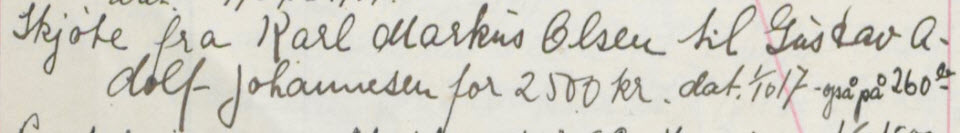 Skjøte fra Karl Markus Olsen til Gustav A-
dolf Johannesen for 2500 kr. dat. 1/10 17 - også på 260